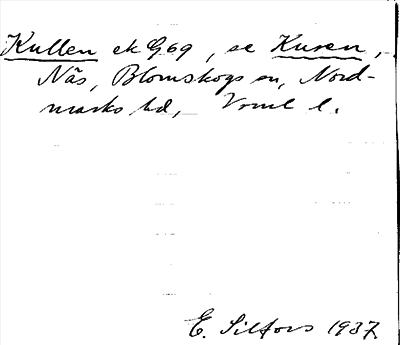 Kullen ek G69, se Kusen,
Näs, Blomskogs sn, Nord-
marks hd, Vrml l.
E. Silfors 1937.